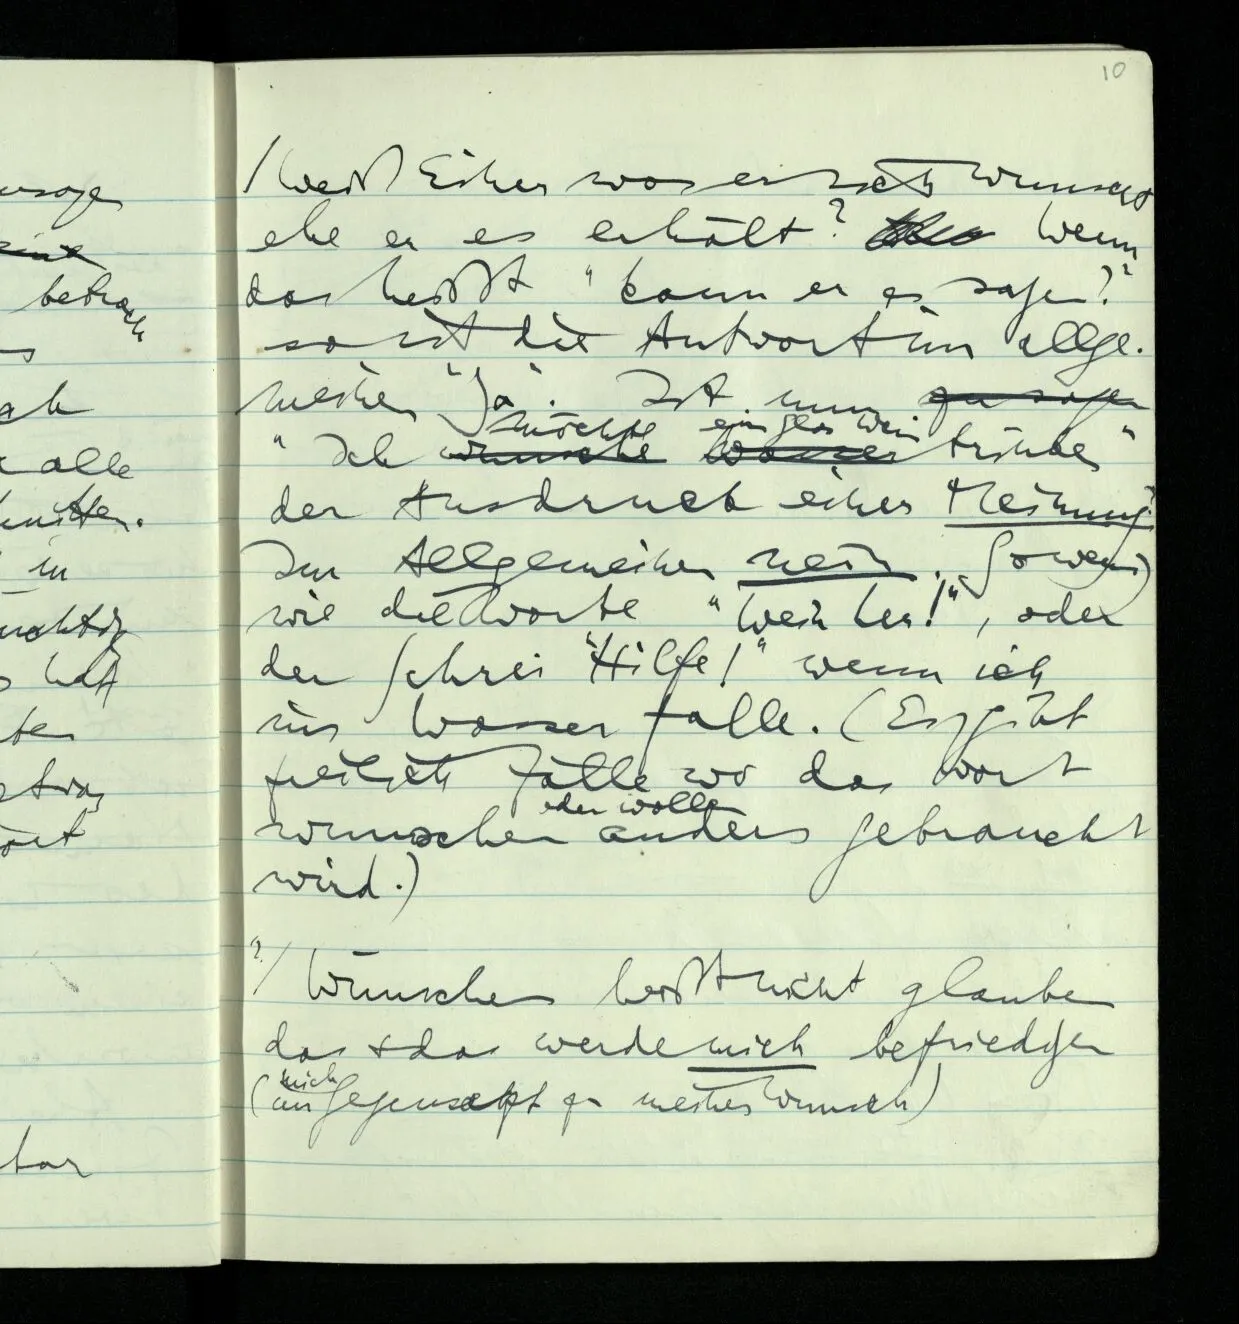 10
usage
eine
betrach
ch
alle
in
hat
ten
etwas
ort
bar
/ Weiß Einer was er sich wünscht
ehe er es erhält? Wenn
das heißt "kann er es sagen?"
so ist die Antwort im allge-
meinen "Ja". Ist nun zu sagen
möchte ein Glas Wein
"Ich wünsche Wasser trinken"
der Ausdruck einer Meinung?
Im Allgemeinen nein. Sowenig
wie die Worte "Wein her!", oder
der Schrei "Hilfe!" wenn ich
ins Wasser falle. (Es gibt
freilich Fälle wo das Wort
oder wollen
wünschen anders gebraucht
wird.)
?/ Wünschen heißt nicht glauben
das + das werde mich befriedigen
mich
(im Gegensatz zu meinem Wunsch)